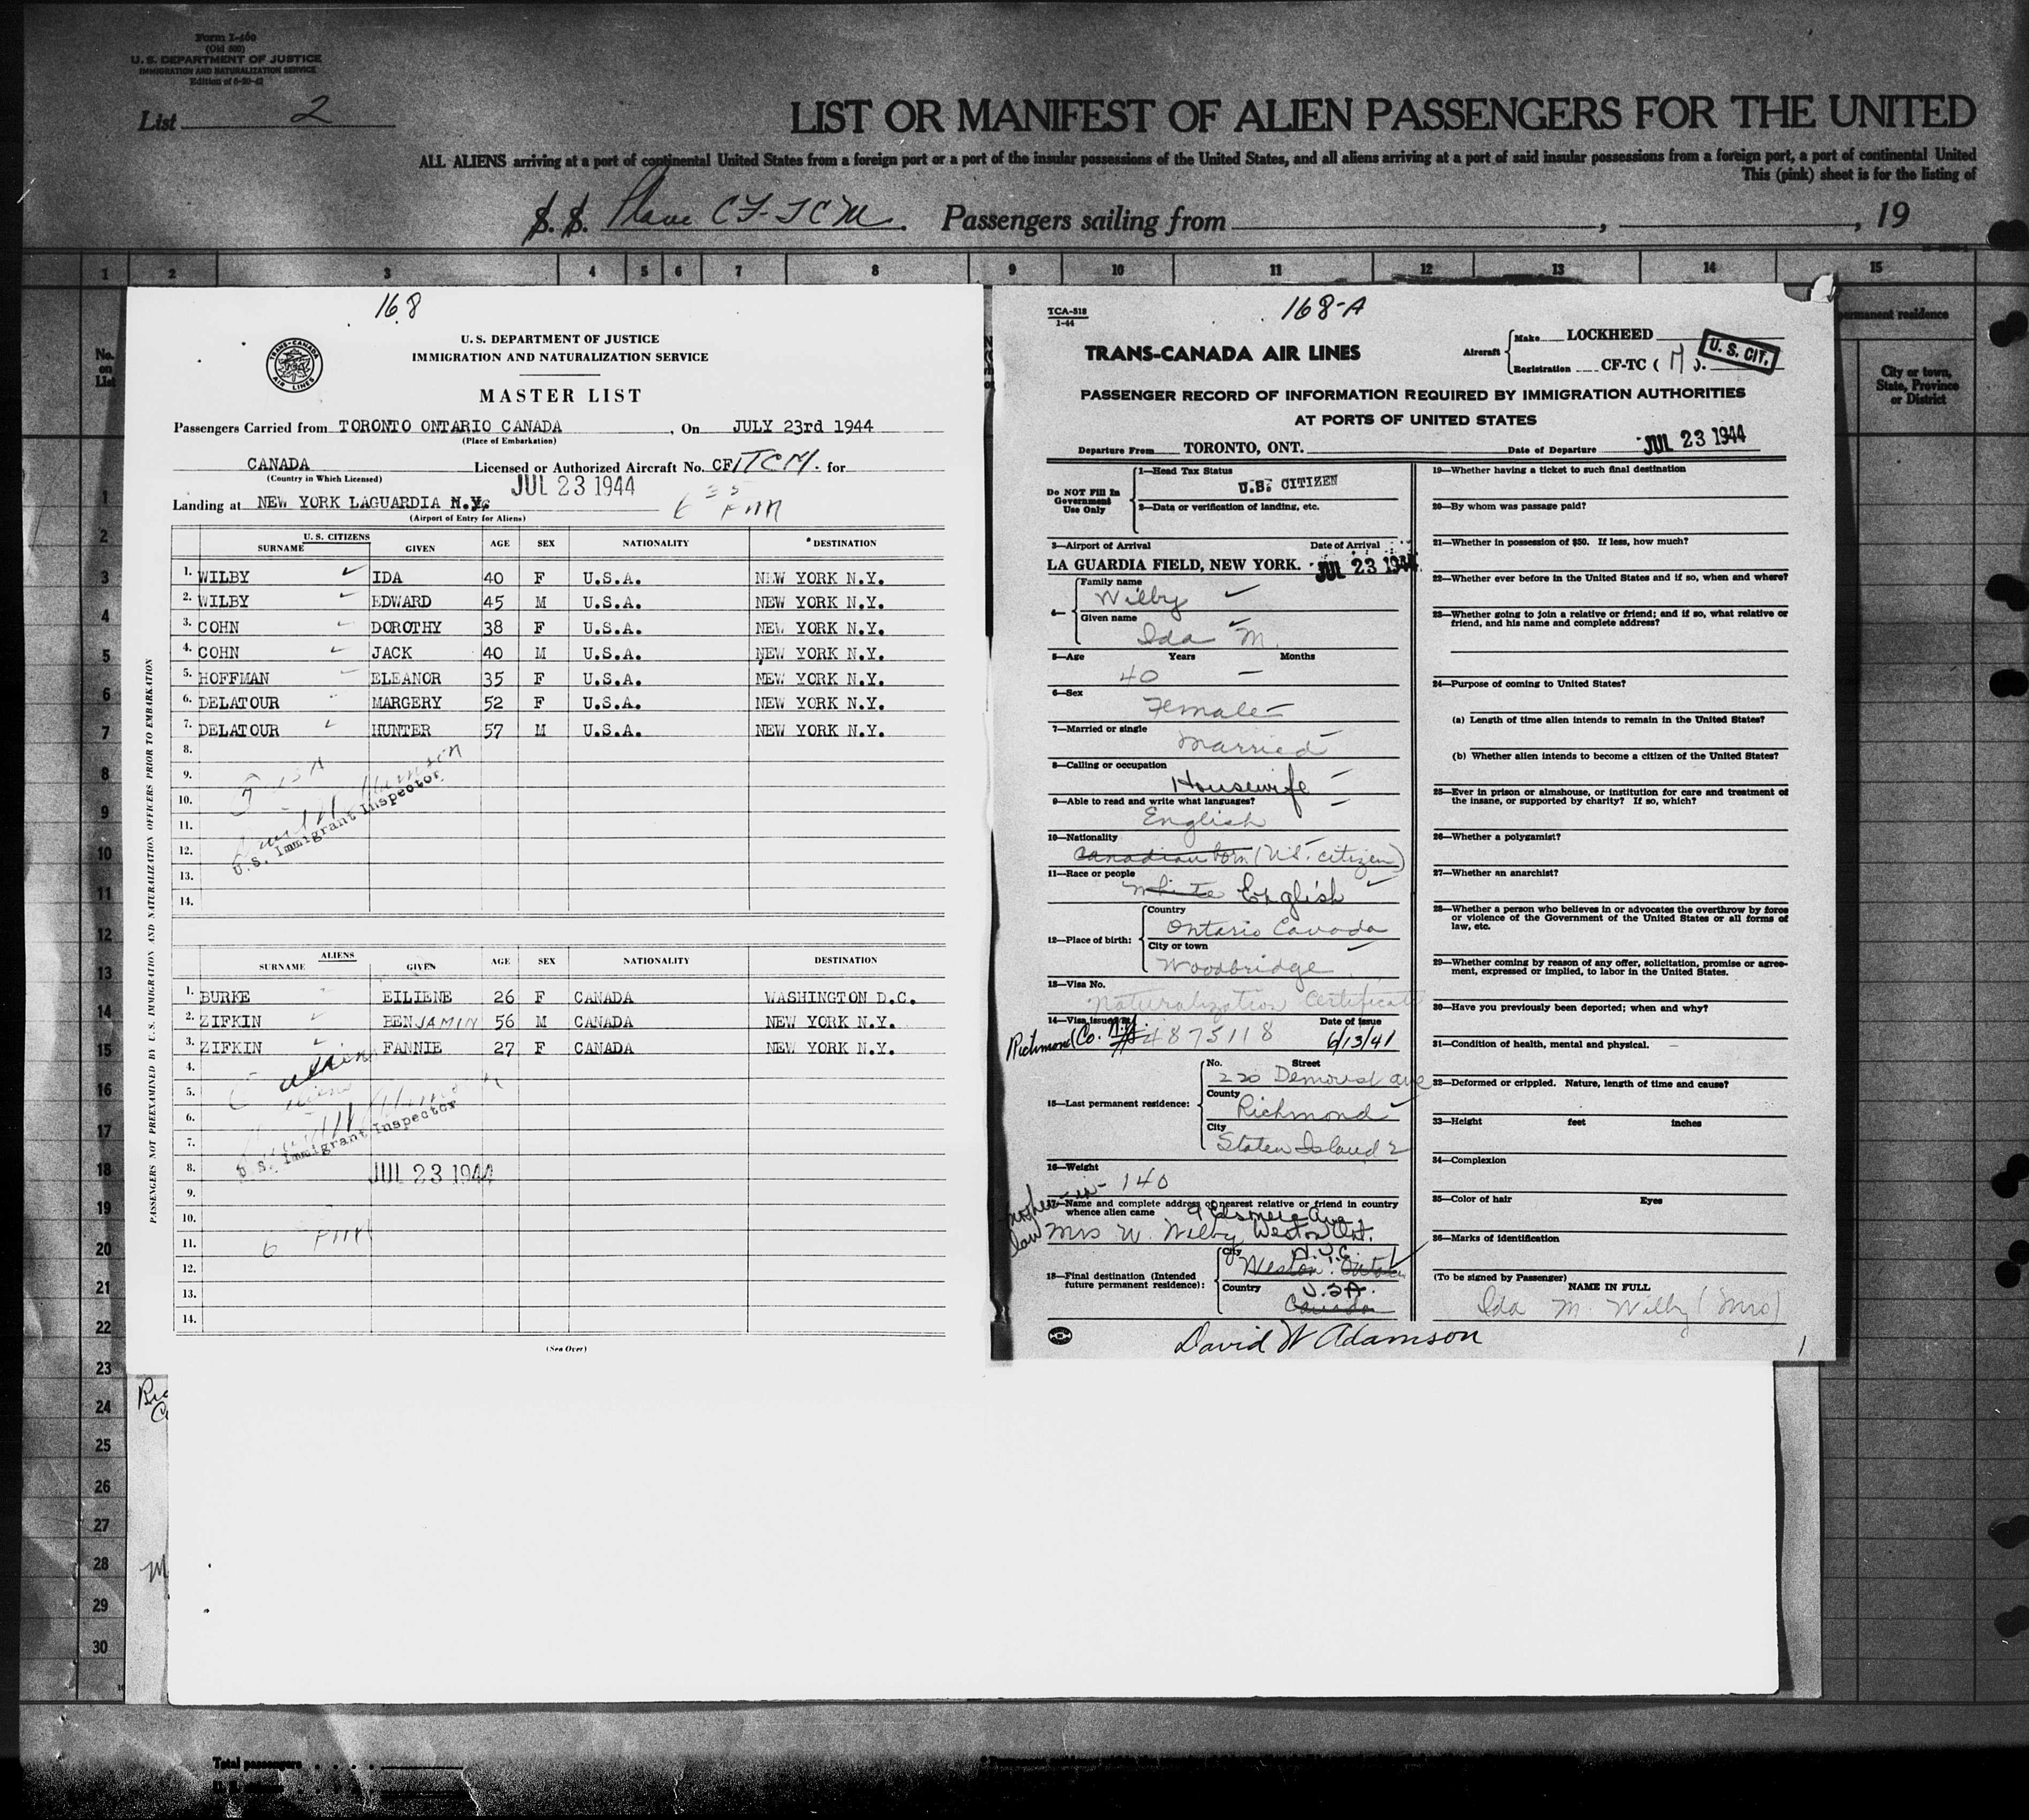 Form I-460
(Old 500)
U. S. DEPARTMENT OF JUSTICE
IMMIGRATION AND NATURALIZATION SERVICE
Edition of 6-20-42
List 2
LIST OR MANIFEST OF ALIEN PASSENGERS FOR THE UNITED
ALL ALIENS arriving at a port of continental United States from a foreign port or a port of the insular possessions of the United States, and all aliens arriving at a port of said insular possessions from a foreign port, a port of continental United
This (pink) sheet is for the listing of
S. S. Plane CF-TCM. Passengers sailing from , , 19
1 2 3 4 5 6 7 8 9 10 11 12 13 14 15
permanent residence
No. on List
City or town, State, Province or District
168
TRANS-CANADA AIR LINES
U. S. DEPARTMENT OF JUSTICE
IMMIGRATION AND NATURALIZATION SERVICE
MASTER LIST
Passengers Carried from TORONTO ONTARIO CANADA, On JULY 23rd 1944
(Place of Embarkation)
CANADA Licensed or Authorized Aircraft No. CF TCM. for
(Country in Which Licensed)
JUL 23 1944
Landing at NEW YORK LAGUARDIA N.Y. 6 35 PM
(Airport of Entry for Aliens)
U. S. CITIZENS
SURNAME GIVEN AGE SEX NATIONALITY *DESTINATION
1. WILBY IDA 40 F U.S.A. NEW YORK N.Y.
2. WILBY EDWARD 45 M U.S.A. NEW YORK N.Y.
3. COHN DOROTHY 38 F U.S.A. NEW YORK N.Y.
4. COHN JACK 40 M U.S.A. NEW YORK N.Y.
5. HOFFMAN ELEANOR 35 F U.S.A. NEW YORK N.Y.
6. DELATOUR MARGERY 52 F U.S.A. NEW YORK N.Y.
7. DELATOUR HUNTER 57 M U.S.A. NEW YORK N.Y.
8.
9.
10.
11.
12.
13.
14.
7 USA
U.S. Immigrant Inspector
ALIENS
SURNAME GIVEN AGE SEX NATIONALITY DESTINATION
1. BURKE EILIENE 26 F CANADA WASHINGTON D.C.
2. ZIFKIN BENJAMIN 56 M CANADA NEW YORK N.Y.
3. ZIFKIN FANNIE 27 F CANADA NEW YORK N.Y.
4.
5.
6.
7.
8.
9.
10.
11.
12.
13.
14.
U.S. Immigrant Inspector
JUL 23 1944
6 PM
(See Over)
PASSENGERS NOT PREEXAMINED BY U.S. IMMIGRATION AND NATURALIZATION OFFICERS PRIOR TO EMBARKATION
TCA-518
1-44
168-A
TRANS-CANADA AIR LINES
Aircraft Make LOCKHEED
Registration CF-TC ( M ).
U. S. CIT.
PASSENGER RECORD OF INFORMATION REQUIRED BY IMMIGRATION AUTHORITIES
AT PORTS OF UNITED STATES
Departure From TORONTO, ONT. Date of Departure JUL 23 1944
Do NOT Fill In Government Use Only
1—Head Tax Status
U.S. CITIZEN
2—Data or verification of landing, etc.
3—Airport of Arrival Date of Arrival
LA GUARDIA FIELD, NEW YORK. JUL 23 1944
4— Family name
Wilby
Given name
Ida M.
5—Age Years Months
40 —
6—Sex
Female
7—Married or single
Married
8—Calling or occupation
Housewife
9—Able to read and write what languages?
English
10—Nationality
Canadian born (U.S. citizen)
11—Race or people
White English
12—Place of birth: Country
Ontario Canada
City or town
Woodbridge
13—Visa No.
Naturalization Certificate
14—Visa issued at Date of Issue
Richmond Co. N.Y. # 4875118 6/13/41
15—Last permanent residence: No. Street
220 Demorest ave
County
Richmond
City
Staten Island 2
16—Weight
140
17—Name and complete address of nearest relative or friend in country
whence alien came
mother-in-law Mrs W. Wilby Weston Ont.
18—Final destination (Intended future permanent residence): City
N.Y.C.
Weston. Ontario
Country
U.S.A.
Canada
19—Whether having a ticket to such final destination
20—By whom was passage paid?
21—Whether in possession of $50. If less, how much?
22—Whether ever before in the United States and if so, when and where?
23—Whether going to join a relative or friend; and if so, what relative or
friend, and his name and complete address?
24—Purpose of coming to United States?
(a) Length of time alien intends to remain in the United States?
(b) Whether alien intends to become a citizen of the United States?
25—Ever in prison or almshouse, or institution for care and treatment of
the insane, or supported by charity? If so, which?
26—Whether a polygamist?
27—Whether an anarchist?
28—Whether a person who believes in or advocates the overthrow by force
or violence of the Government of the United States or all forms of
law, etc.
29—Whether coming by reason of any offer, solicitation, promise or agree-
ment, expressed or implied, to labor in the United States.
30—Have you previously been deported; when and why?
31—Condition of health, mental and physical.
32—Deformed or crippled. Nature, length of time and cause?
33—Height feet inches
34—Complexion
35—Color of hair Eyes
36—Marks of identification
(To be signed by Passenger) NAME IN FULL
Ida M Wilby (Mrs)
David W Adamson
1
1
2
3
4
5
6
7
8
9
10
11
12
13
14
15
16
17
18
19
20
21
22
23
24
25
26
27
28
29
30
Total passengers